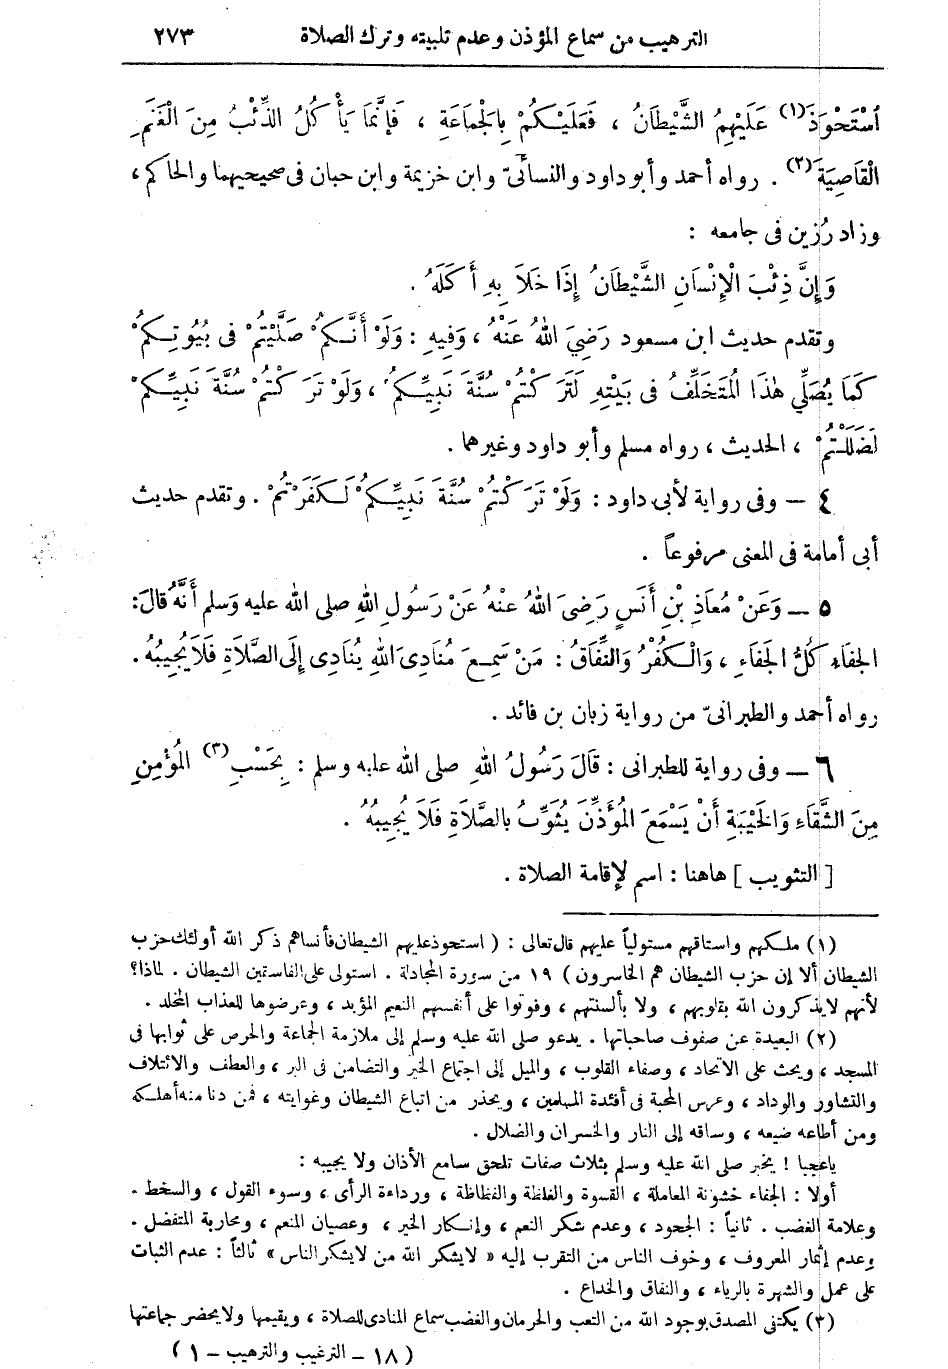 الترهيب من سماع المؤذن وعدم تلبيته وترك الصلاة ٢٧٣
اُسْتَحْوَذَ(١) عَلَيْهِمُ الشَّيْطَانُ ، فَعَلَيْكُمْ بِالْجَمَاعَةِ ، فَإِنَّمَا يَأْكُلُ الذِّئْبُ مِنَ الْغَنَمِ
الْقَاصِيَةَ(٢) . رواه أحمد وأبو داود والنسائىّ وابن خزيمة وابن حبان فى صحيحيهما والحاكم ،
وزاد رُزين فى جامعه :
وَإِنَّ ذِئْبَ الْإِنْسَانِ الشَّيْطَانُ إِذَا خَلَا بِهِ أَكَلَهُ .
وتقدم حديث ابن مسعود رَضِيَ اللهُ عَنْهُ ، وَفِيهِ : وَلَوْ أَنَّكُمْ صَلَّيْتُمْ فى بُيُوتِكُمْ
كَمَا يُصَلِّي هٰذَا الْمُتَخَلِّفُ فى بَيْتِهِ لَتَرَكْتُمْ سُنَّةَ نَبِيِّكُمْ ، وَلَوْ تَرَكْتُمْ سُنَّةَ نَبِيِّكُمْ
لَضَلَلْتُمْ ، الحديث ، رواه مسلم وأبو داود وغيرهما .
٤ — وفى رواية لأبى داود : وَلَوْ تَرَكْتُمْ سُنَّةَ نَبِيِّكُمْ لَكَفَرْتُمْ . وتقدم حديث
أبى أمامة فى المعنى مرفوعاً .
٥ — وَعَنْ مُعَاذِ بْنِ أَنَسٍ رَضِىَ اللهُ عنْهُ عَنْ رَسُولِ اللهِ صلى الله عليه وَسلم أَنَّهُ قَالَ :
الجفَاءِ كُلُّ الجفَاءِ ، وَالْكُفْرُ وَالنِّفَاقُ : مَنْ سَمِعَ مُنَادِىَ اللهِ يُنَادِى إِلَى الصَّلَاةِ فَلَا يُجِيبُهُ .
رواه أحمد والطبرانىّ من رواية زبان بن فائد .
٦ — وفى رواية للطبرانى : قَالَ رَسُولُ اللهِ صلى الله عليه وسلم : بِحَسْبِ(٣) الْمُؤْمِنِ
مِنَ الشَّقَاءِ وَالْخَيْبَةِ أَنْ يَسْمَعَ الْمُؤَذِّنَ يُثَوِّبُ بالصَّلَاةِ فَلَا يُجِيبُهُ .
[ التثويب ] هاهنا : اسم لإقامة الصلاة .
(١) ملكهم واستاقهم مستولياً عليهم قال تعالى : ( استحوذ عليهم الشيطان فأنساهم ذكر الله أولئك حزب
الشيطان ألا إن حزب الشيطان هم الخاسرون ) ١٩ من سورة المجادلة . استولى على الفاسقين الشيطان . لماذا؟
لأنهم لا يذكرون الله بقلوبهم ، ولا بألسنتهم ، وفوتوا على أنفسهم النعيم المؤبد ، وعرضوها للعذاب المخلد .
(٢) البعيدة عن صفوف صاحباتها . يدعو صلى الله عليه وسلم إلى ملازمة الجماعة والحرص على ثوابها فى
المسجد ، ويحث على الاتحاد ، وصفاء القلوب ، والميل إلى اجتماع الخير والتضامن فى البر ، والعطف والائتلاف
والتشاور والوداد ، وغرس المحبة فى أفئدة المسلمين ، ويحذر من اتباع الشيطان وغوايته ، فمن دنا منه أهلكه
ومن أطاعه ضيعه ، وساقه إلى النار والخسران والضلال .
ياعجبا ! يخبر صلى الله عليه وسلم بثلاث صفات تلحق سامع الأذان ولا يجيبه :
أولا : الجفاء خشونة المعاملة ، القسوة والغلظة والفظاظة ، ورداءة الرأى ، وسوء القول ، والسخط .
وعلامة الغضب . ثانياً : الجحود ، وعدم شكر النعم ، وإنكار الخير ، وعصيان المنعم ، ومحاربة المتفضل .
وعدم إثمار المعروف ، وخوف الناس من التقرب إليه « لا يشكر الله من لا يشكر الناس » ثالثاً : عدم الثبات
على عمل والشهرة بالرياء ، والنفاق والخداع .
(٣) يكتفى المصدق بوجود الله من التعب والحرمان والغضب سماع المنادى للصلاة ، ويقيمها ولا يحضر جماعتها
( ١٨ — الترغيب والترهيب — ١ )